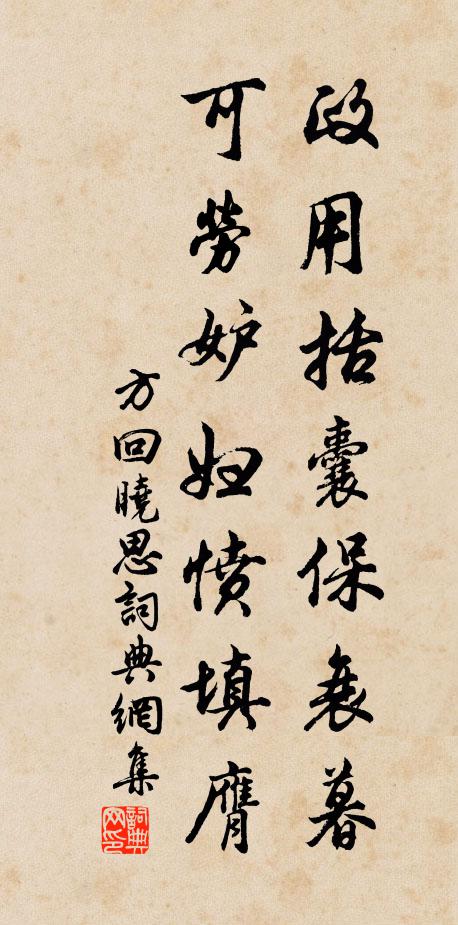 政用括囊保衰暮
可勞妒婦憤填膺
方回曉思詞典網集
詞典網印